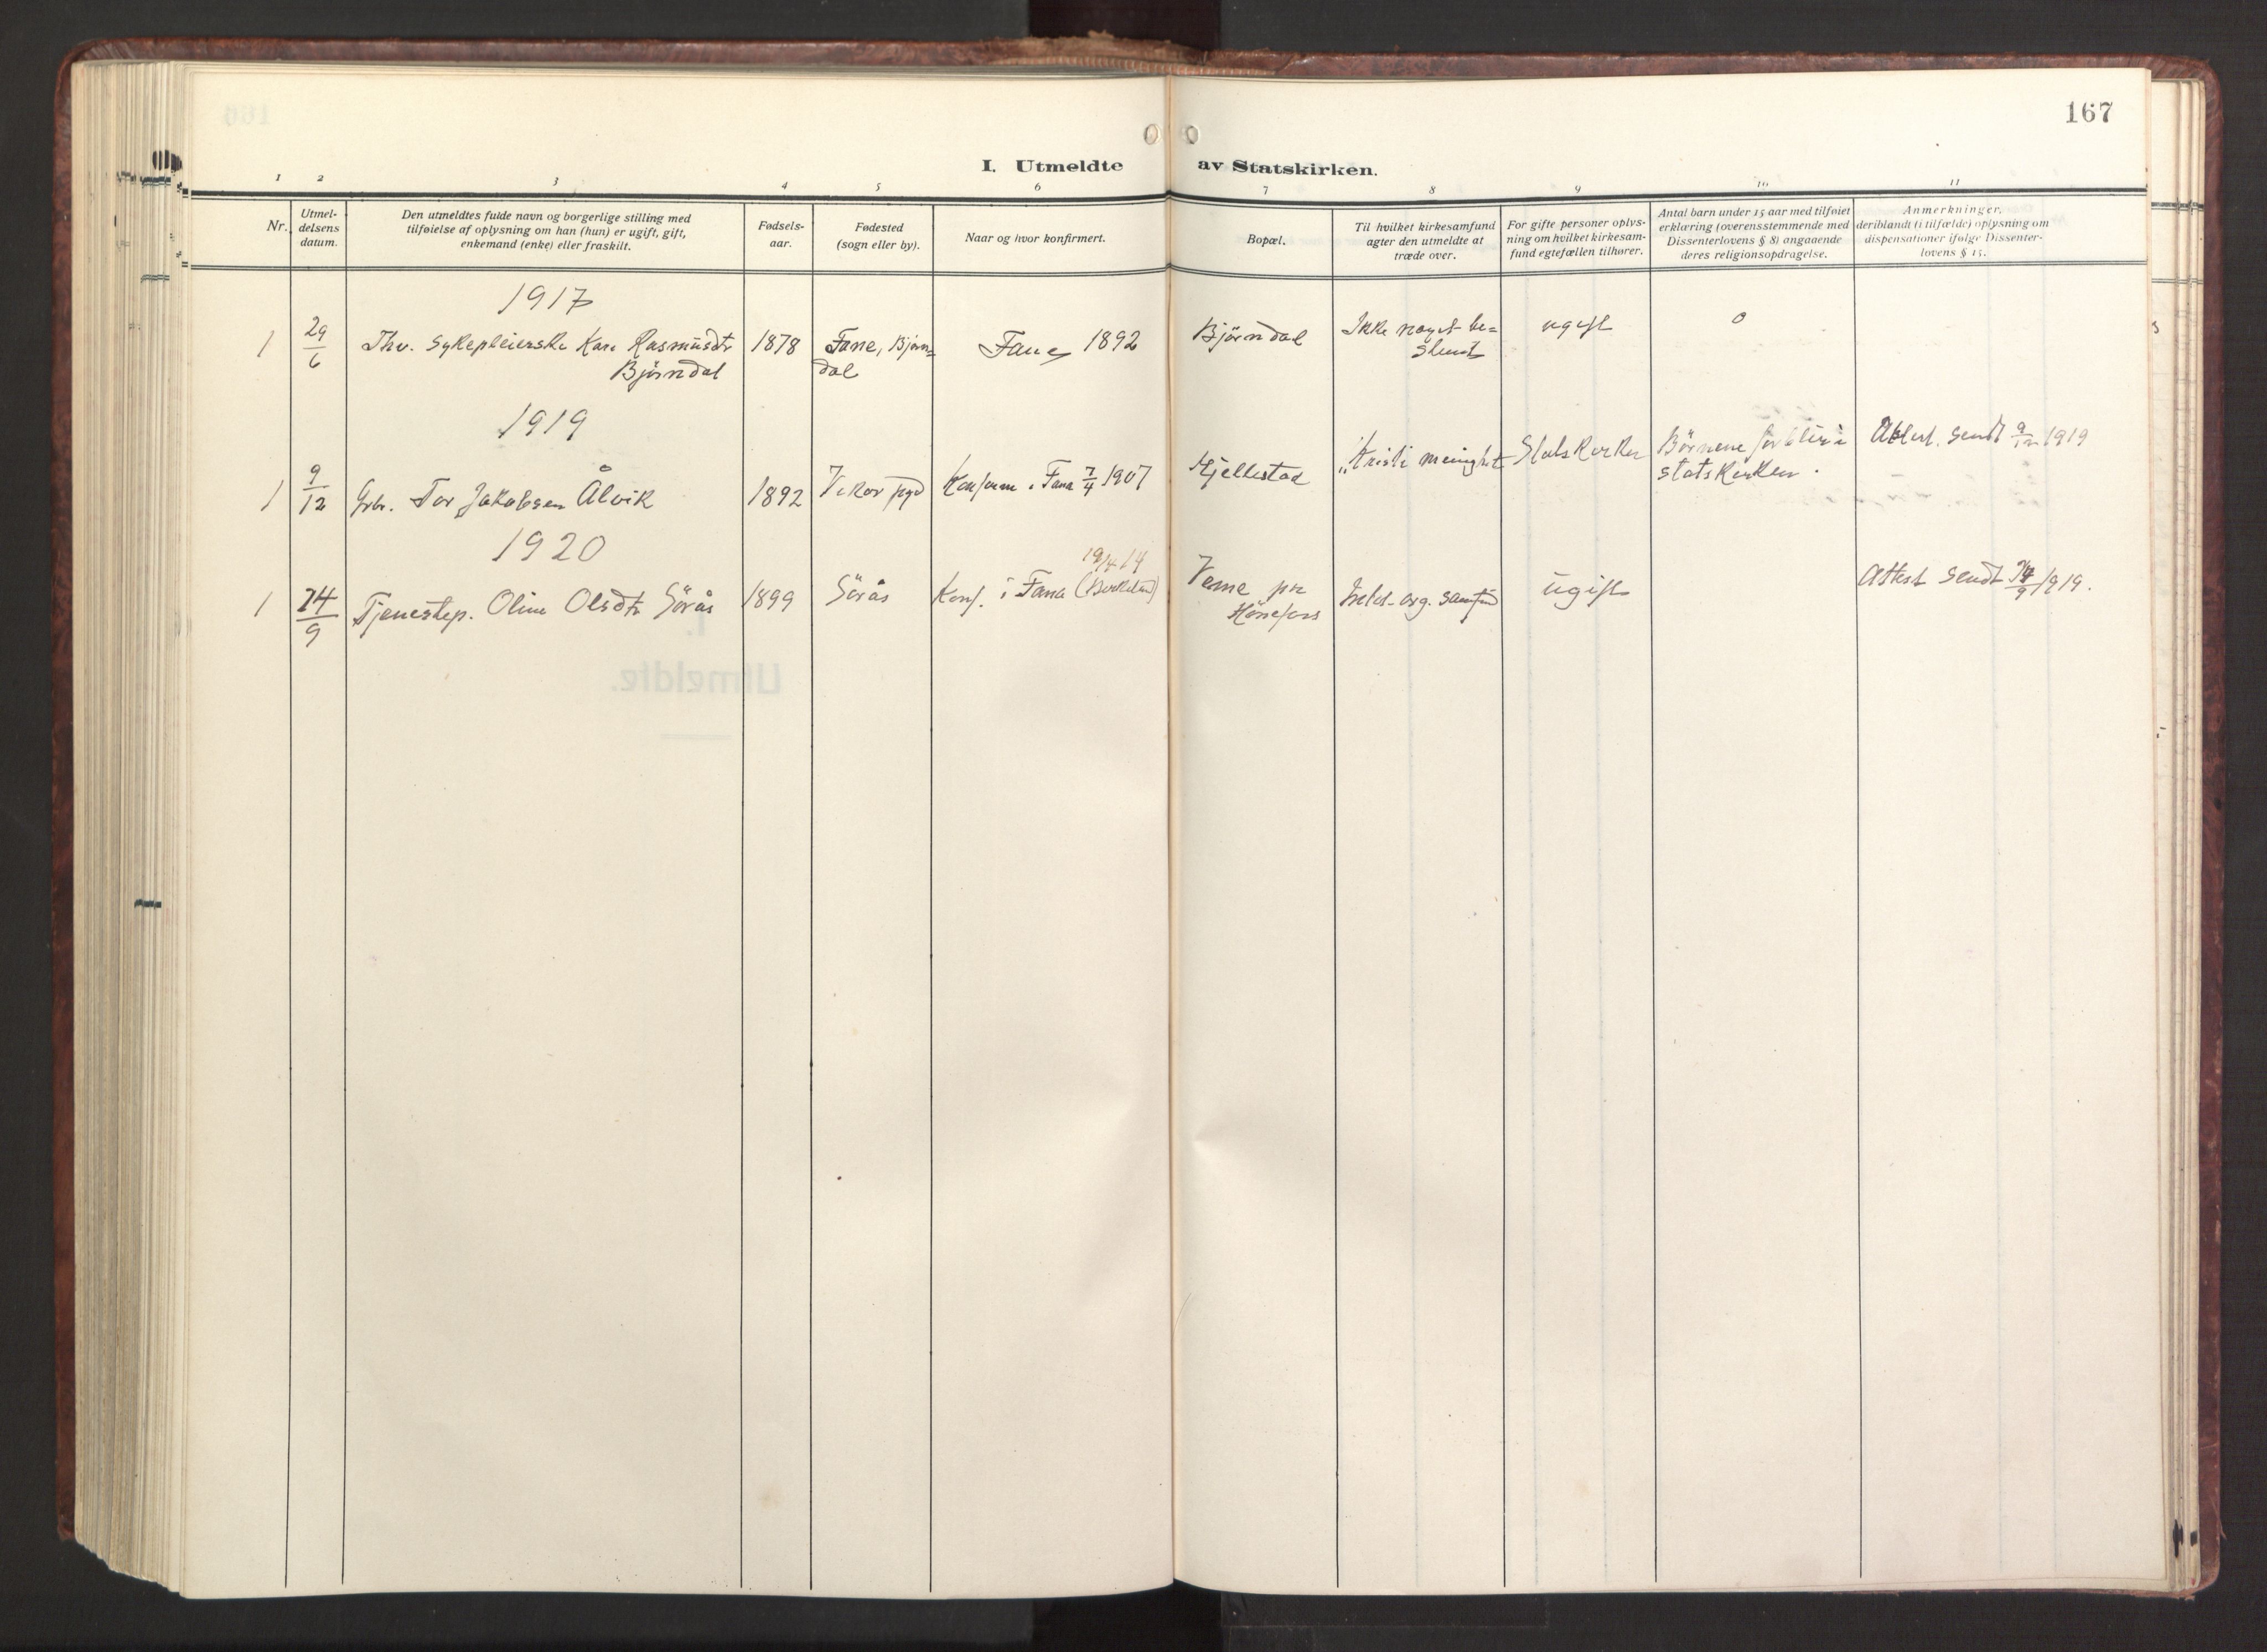 167
I. Utmeldte av Statskirken.
1 2 3 4 5 6 7 8 9 10 11
Nr.
Utmel-
delsens
datum.
Den utmeldtes fulde navn og borgerlige stilling med
tilføielse af oplysning om han (hun) er ugift, gift,
enkemand (enke) eller fraskilt.
Fødsels-
aar.
Fødested
(sogn eller by).
Naar og hvor konfirmert.
Bopæl.
Til hvilket kirkesamfund
agter den utmeldte at
træde over.
For gifte personer oplys-
ning om hvilket kirkesam-
fund egtefællen tilhører.
Antal barn under 15 aar med tilføiet
erklæring (overensstemmende med
Dissenterlovens § 8) angaaende
deres religionsopdragelse.
Anmerkninger,
deriblandt (i tilfælde) oplysning om
dispensationer ifølge Dissenter-
lovens § 15.
1917
1 29/6 Sykepleierske Kari Rasmusdtr 1878 Fane, Bjørn= Fane 1892 Bjørndal Ikke noget be= ugift 0
Bjørndal dal stemt
1919
1 9/12 Gbr. Tor Jakobsen Ålvik 1892 Vikør pgd Konfirm. i Fana 7/4 1907 Hjellestad "Kristi menighet Statskirken Børnene forblir i Attest. sendt 9/12 1919
statskirken.
1920
19/4 14
1 24/9 Tjenestep. Oline Olsdtr Sørås 1899 Sørås Konf. i Fana (Birkeland) Veme pr Frelst-arg. samfund ugift Attest sendt 24/9 1919.
Hønefoss
Utmeldte.